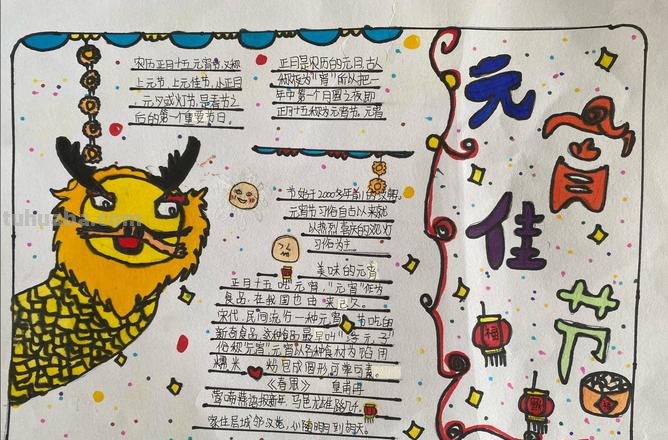 元宵佳节
农历正月十五元宵节,又称
上元节、上元佳节、小正月
元夕或灯节,是春节之
后的第一个重要节日。
正月是农历的元月,古人
称夜为"宵"所以把一
年中第一个月圆之夜即
正月十五称为元宵节。元宵
节始于2000多年前的汉朝
元宵节习俗自古以来就
以热烈喜庆的观灯
习俗为主
美味的元宵
正月十五吃元宵,"元宵"作为
食品,在我国也由来已久。
宋代,民间流行一种元宵节吃的
新奇食品。这种食品最早叫"浮元子"
俗称"元宵"元宵以各种食材为馅用
糯米粉包成圆形可荤可素。
《春思》 皇甫冉
莺啼燕语报新年,马邑龙堆路几千。
家住层城邻汉苑,心随明月到胡天。
福
福
tuhuaba.com